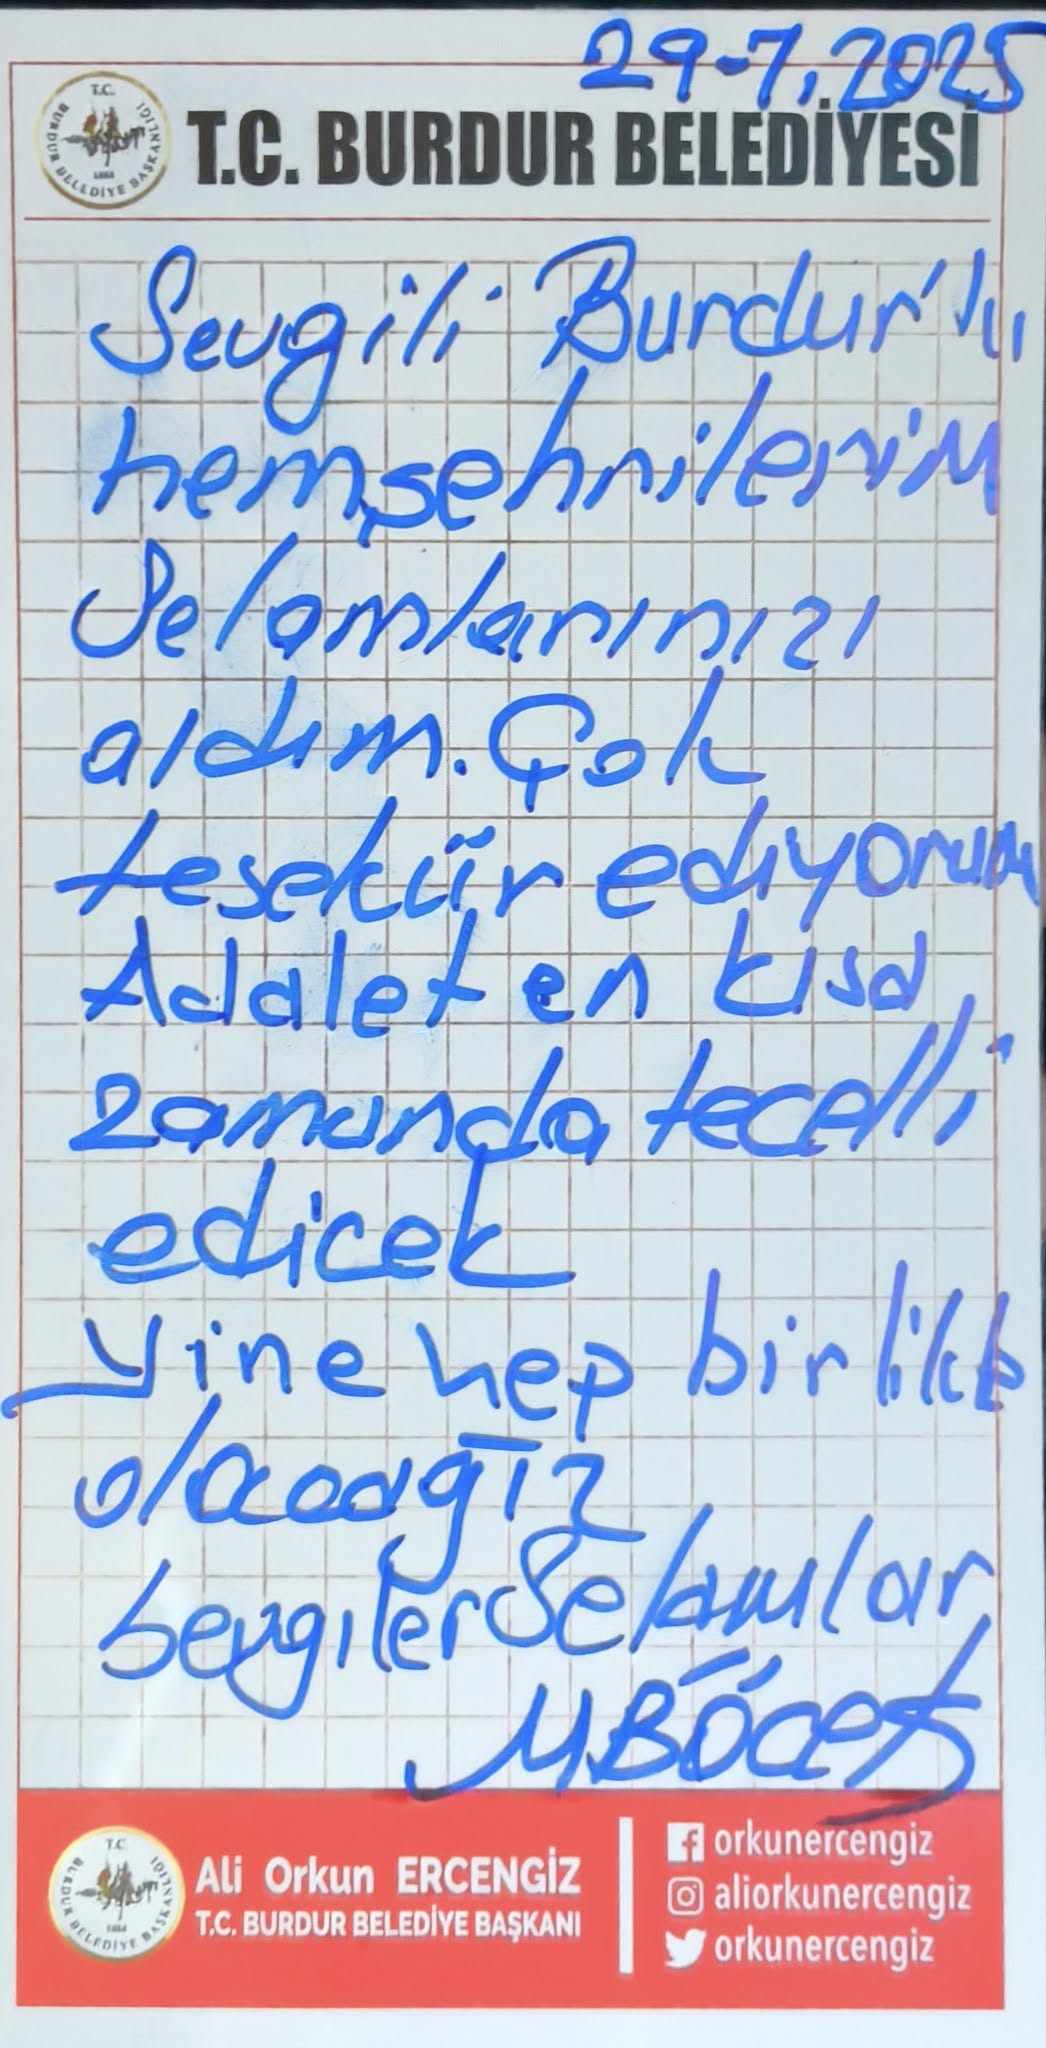 29-7.2025
T.C. BURDUR BELEDİYESİ
Sevgili Burdur'lı
hemşehrilerim
Selamlarınızı
aldım. Çok
teşekür ediyorum
Adalet en kısa
zamanda tecelli
edicek
Yine hep birlikte
olacağız
Sevgiler Selamlar
MBÖcek
T.C.
BURDUR BELEDİYE BAŞKANLIĞI
Ali Orkun ERCENGİZ
T.C. BURDUR BELEDİYE BAŞKANI
orkunercengiz
aliorkunercengiz
orkunercengiz